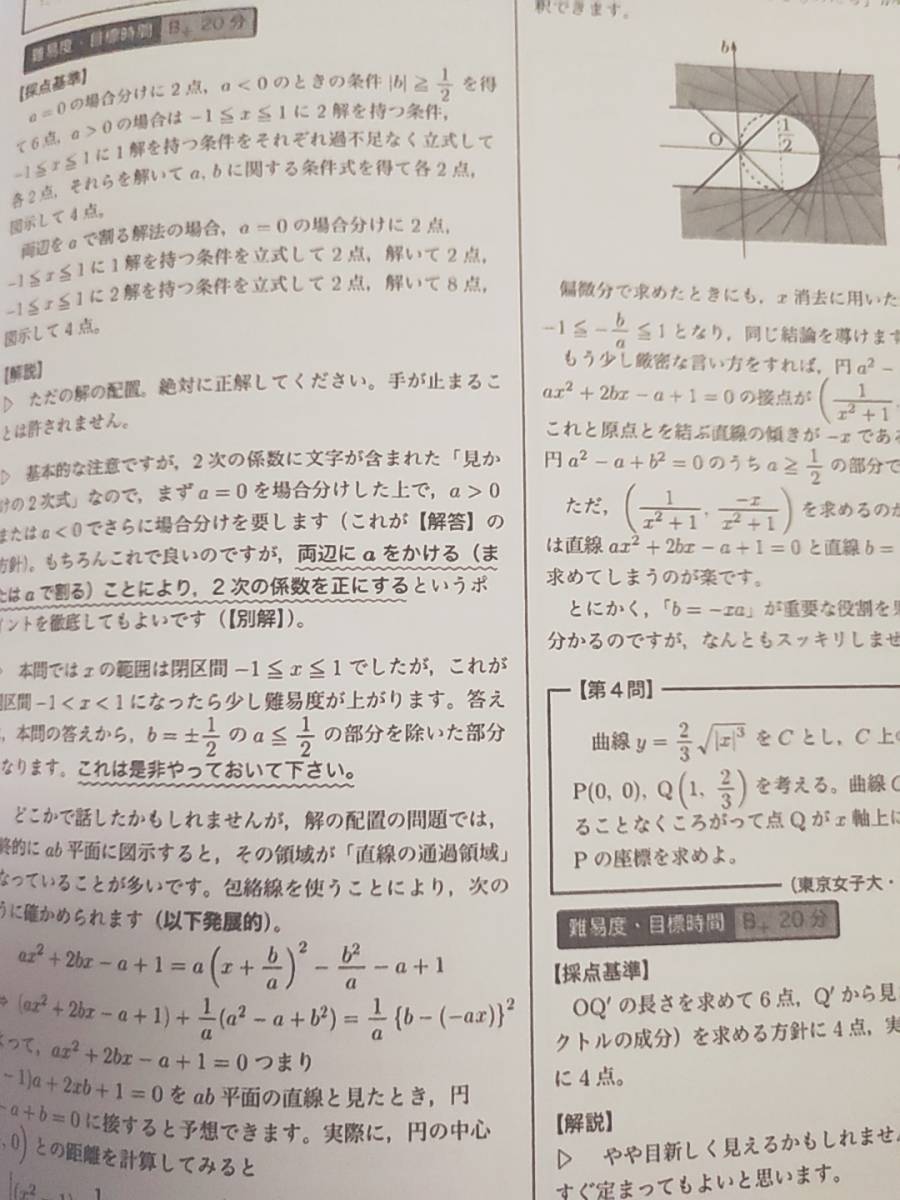 難易度・目標時間 B+ 20分
【採点基準】
a=0の場合分けに2点，a<0のときの条件 |b|≧1/2 を得
て6点，a>0の場合は −1≦x≦1に2解を持つ条件，
−1≦x≦1に1解を持つ条件をそれぞれ過不足なく立式して
各2点，それらを解いてa, bに関する条件式を得て各2点，
図示して4点。
両辺をaで割る解法の場合，a=0の場合分けに2点，
−1≦x≦1に1解を持つ条件を立式して2点，解いて2点，
−1≦x≦1に2解を持つ条件を立式して2点，解いて8点，
図示して4点。
【解説】
▷ ただの解の配置。絶対に正解してください。手が止まるこ
とは許されません。
▷ 基本的な注意ですが，2次の係数に文字が含まれた「見か
けの2次式」なので，まずa=0を場合分けした上で，a>0
またはa<0でさらに場合分けを要します（これが【解答】の
方針）。もちろんこれで良いのですが，両辺にaをかける（ま
たはaで割る）ことにより，2次の係数を正にするというポ
イントを徹底してもよいです（【別解】）。
本問ではxの範囲は閉区間 −1≦x≦1でしたが，これが
区間 −1<x<1になったら少し難易度が上がります。答え
，本問の答えから，b=±1/2 の a≦1/2 の部分を除いた部分
なります。これは是非やっておいて下さい。
どこかで話したかもしれませんが，解の配置の問題では，
終的にab平面に図示すると，その領域が「直線の通過領域」
なっていることが多いです。包絡線を使うことにより，次の
うに確かめられます（以下発展的）。
ax²+2bx−a+1=a(x+b/a)²−b²/a−a+1
⇔ (ax²+2bx−a+1)+1/a(a²−a+b²)=1/a{b−(−ax)}²
よって，ax²+2bx−a+1=0つまり
−1)a+2xb+1=0をab平面の直線と見たとき，円
−a+b=0に接すると予想できます。実際に，円の中心
, 0)との距離を計算してみると
釈できます。
b
O
1/2
偏微分で求めたときにも，x消去に用いた
−1≦−b/a≦1となり，同じ結論を導けます
もう少し厳密な言い方をすれば，円a²−
ax²+2bx−a+1=0の接点が(1/(x²+1),
これと原点とを結ぶ直線の傾きが−xである
円a²−a+b²=0のうちa≧1/2の部分で
ただ，(1/(x²+1), −x/(x²+1))を求めるのが
は直線ax²+2bx−a+1=0と直線b=
求めてしまうのが楽です。
とにかく，「b=−xa」が重要な役割を果
分かるのですが，なんともスッキリしませ
【第4問】
曲線 y=2/3√|x|³ をCとし，C上の
P(0, 0), Q(1, 2/3) を考える。曲線C
ることなくころがって点Qがx軸上に
Pの座標を求めよ。
（東京女子大・
難易度・目標時間 B+ 20分
【採点基準】
OQ′の長さを求めて6点，Q′から見
クトルの成分）を求める方針に4点，実
に4点。
【解説】
▷ やや目新しく見えるかもしれません
すぐ定まってもよいと思います。